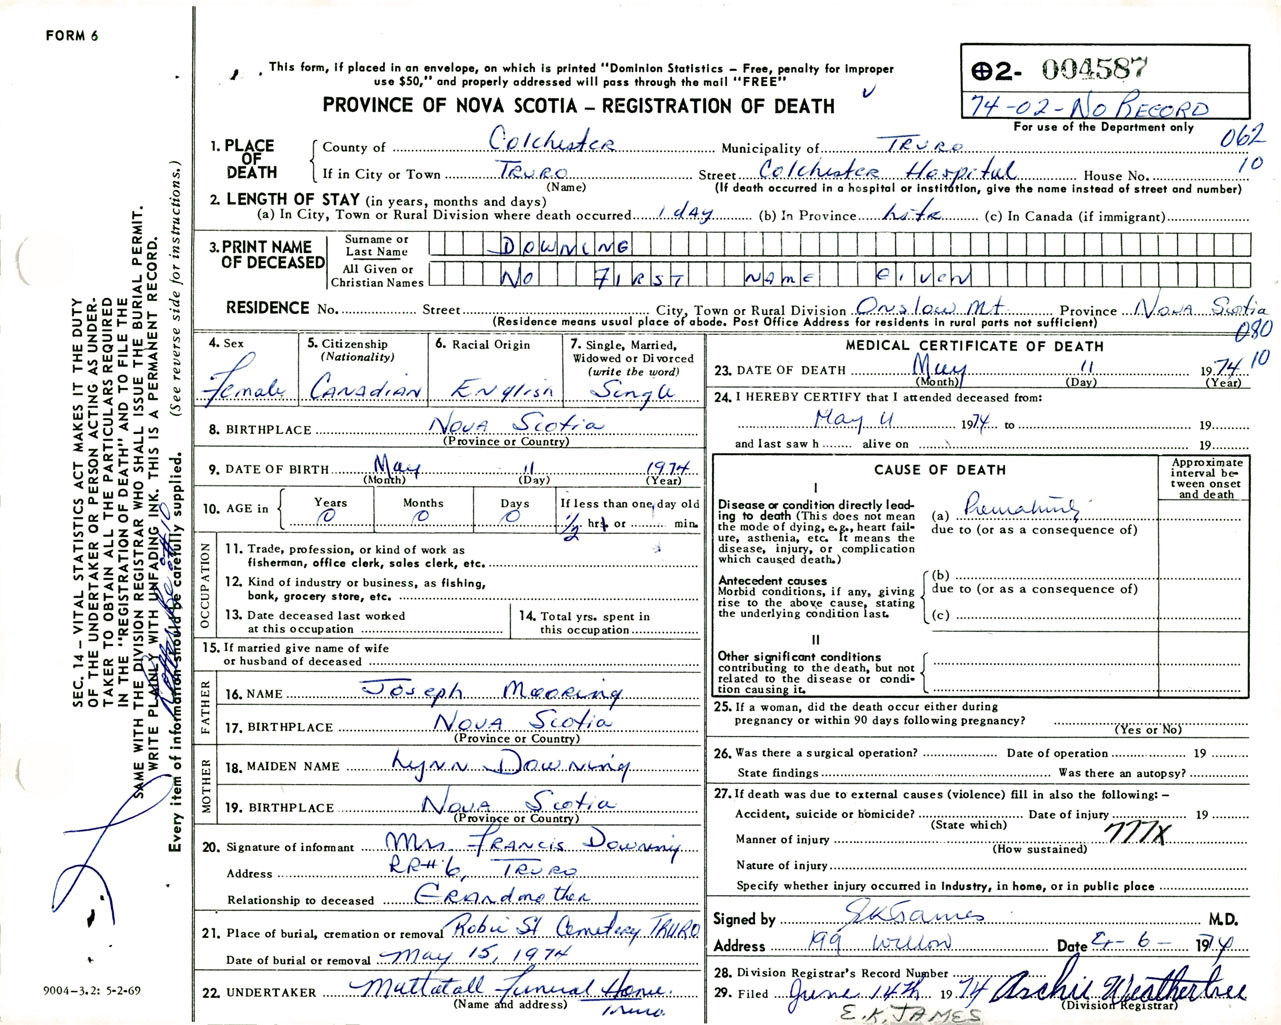 FORM 6
This form, if placed in an envelope, on which is printed "Dominion Statistics – Free, penalty for improper
use $50," and properly addressed will pass through the mail "FREE"
PROVINCE OF NOVA SCOTIA – REGISTRATION OF DEATH
02- 004587
74-02-NO RECORD
For use of the Department only
062
10
1. PLACE OF DEATH
County of Colchester Municipality of TRURO
If in City or Town TRURO Street Colchester Hospital House No.
(Name) (If death occurred in a hospital or institution, give the name instead of street and number)
2. LENGTH OF STAY (in years, months and days)
(a) In City, Town or Rural Division where death occurred 1 day (b) In Province Life (c) In Canada (if immigrant)
3. PRINT NAME OF DECEASED
Surname or Last Name DOWNING
All Given or Christian Names NO FIRST NAME GIVEN
RESIDENCE No. Street City, Town or Rural Division Onslow Mt Province NOVA Scotia
(Residence means usual place of abode. Post Office Address for residents in rural parts not sufficient)
080
10
4. Sex Female
5. Citizenship (Nationality) CANADIAN
6. Racial Origin English
7. Single, Married, Widowed or Divorced (write the word) Single
8. BIRTHPLACE NOVA SCOTIA
(Province or Country)
9. DATE OF BIRTH May 11 1974
(Month) (Day) (Year)
10. AGE in Years 0 Months 0 Days 0 If less than one day old 1/2 hrs or min.
OCCUPATION
11. Trade, profession, or kind of work as
fisherman, office clerk, sales clerk, etc.
12. Kind of industry or business, as fishing,
bank, grocery store, etc.
13. Date deceased last worked
at this occupation
14. Total yrs. spent in
this occupation
15. If married give name of wife
or husband of deceased
FATHER
16. NAME Joseph Mooring
17. BIRTHPLACE NOVA SCOTIA
(Province or Country)
MOTHER
18. MAIDEN NAME Lynn Downing
19. BIRTHPLACE NOVA Scotia
(Province or Country)
20. Signature of informant Mrs FRANCIS Downing
Address RR#6, TRURO
Relationship to deceased GRANDmother
21. Place of burial, cremation or removal Robie St Cemetery TRURO
Date of burial or removal May 15, 1974
22. UNDERTAKER Mattatall Funeral Home
(Name and address) Truro
MEDICAL CERTIFICATE OF DEATH
23. DATE OF DEATH May 11 1974
(Month) (Day) (Year)
24. I HEREBY CERTIFY that I attended deceased from:
May 11 1974 to 19
and last saw h alive on 19
CAUSE OF DEATH
Approximate interval between onset and death
I
Disease or condition directly lead-
ing to death (This does not mean
the mode of dying, e.g., heart fail-
ure, asthenia, etc. It means the
disease, injury, or complication
which caused death.)
(a) Prematurity
due to (or as a consequence of)
Antecedent causes
Morbid conditions, if any, giving
rise to the above cause, stating
the underlying condition last.
(b)
due to (or as a consequence of)
(c)
II
Other significant conditions
contributing to the death, but not
related to the disease or condi-
tion causing it.
25. If a woman, did the death occur either during
pregnancy or within 90 days following pregnancy?
(Yes or No)
26. Was there a surgical operation? Date of operation 19
State findings Was there an autopsy?
27. If death was due to external causes (violence) fill in also the following: –
Accident, suicide or homicide? Date of injury 19
(State which) 777X
Manner of injury
(How sustained)
Nature of injury
Specify whether injury occurred in Industry, in home, or in public place
Signed by EKJames M.D.
Address 199 Willow Date 6 - 1974
28. Division Registrar's Record Number
29. Filed June 14th 1974 Archie Weatherbee
(Division Registrar)
E.K. JAMES
SEC. 14 – VITAL STATISTICS ACT MAKES IT THE DUTY
OF THE UNDERTAKER OR PERSON ACTING AS UNDER-
TAKER TO OBTAIN ALL THE PARTICULARS REQUIRED
IN THE "REGISTRATION OF DEATH" AND TO FILE THE
SAME WITH THE DIVISION REGISTRAR WHO SHALL ISSUE THE BURIAL PERMIT.
WRITE PLAINLY WITH UNFADING INK. THIS IS A PERMANENT RECORD.
Every item of information should be carefully supplied. (See reverse side for instructions.)
9004-3.2: 5-2-69